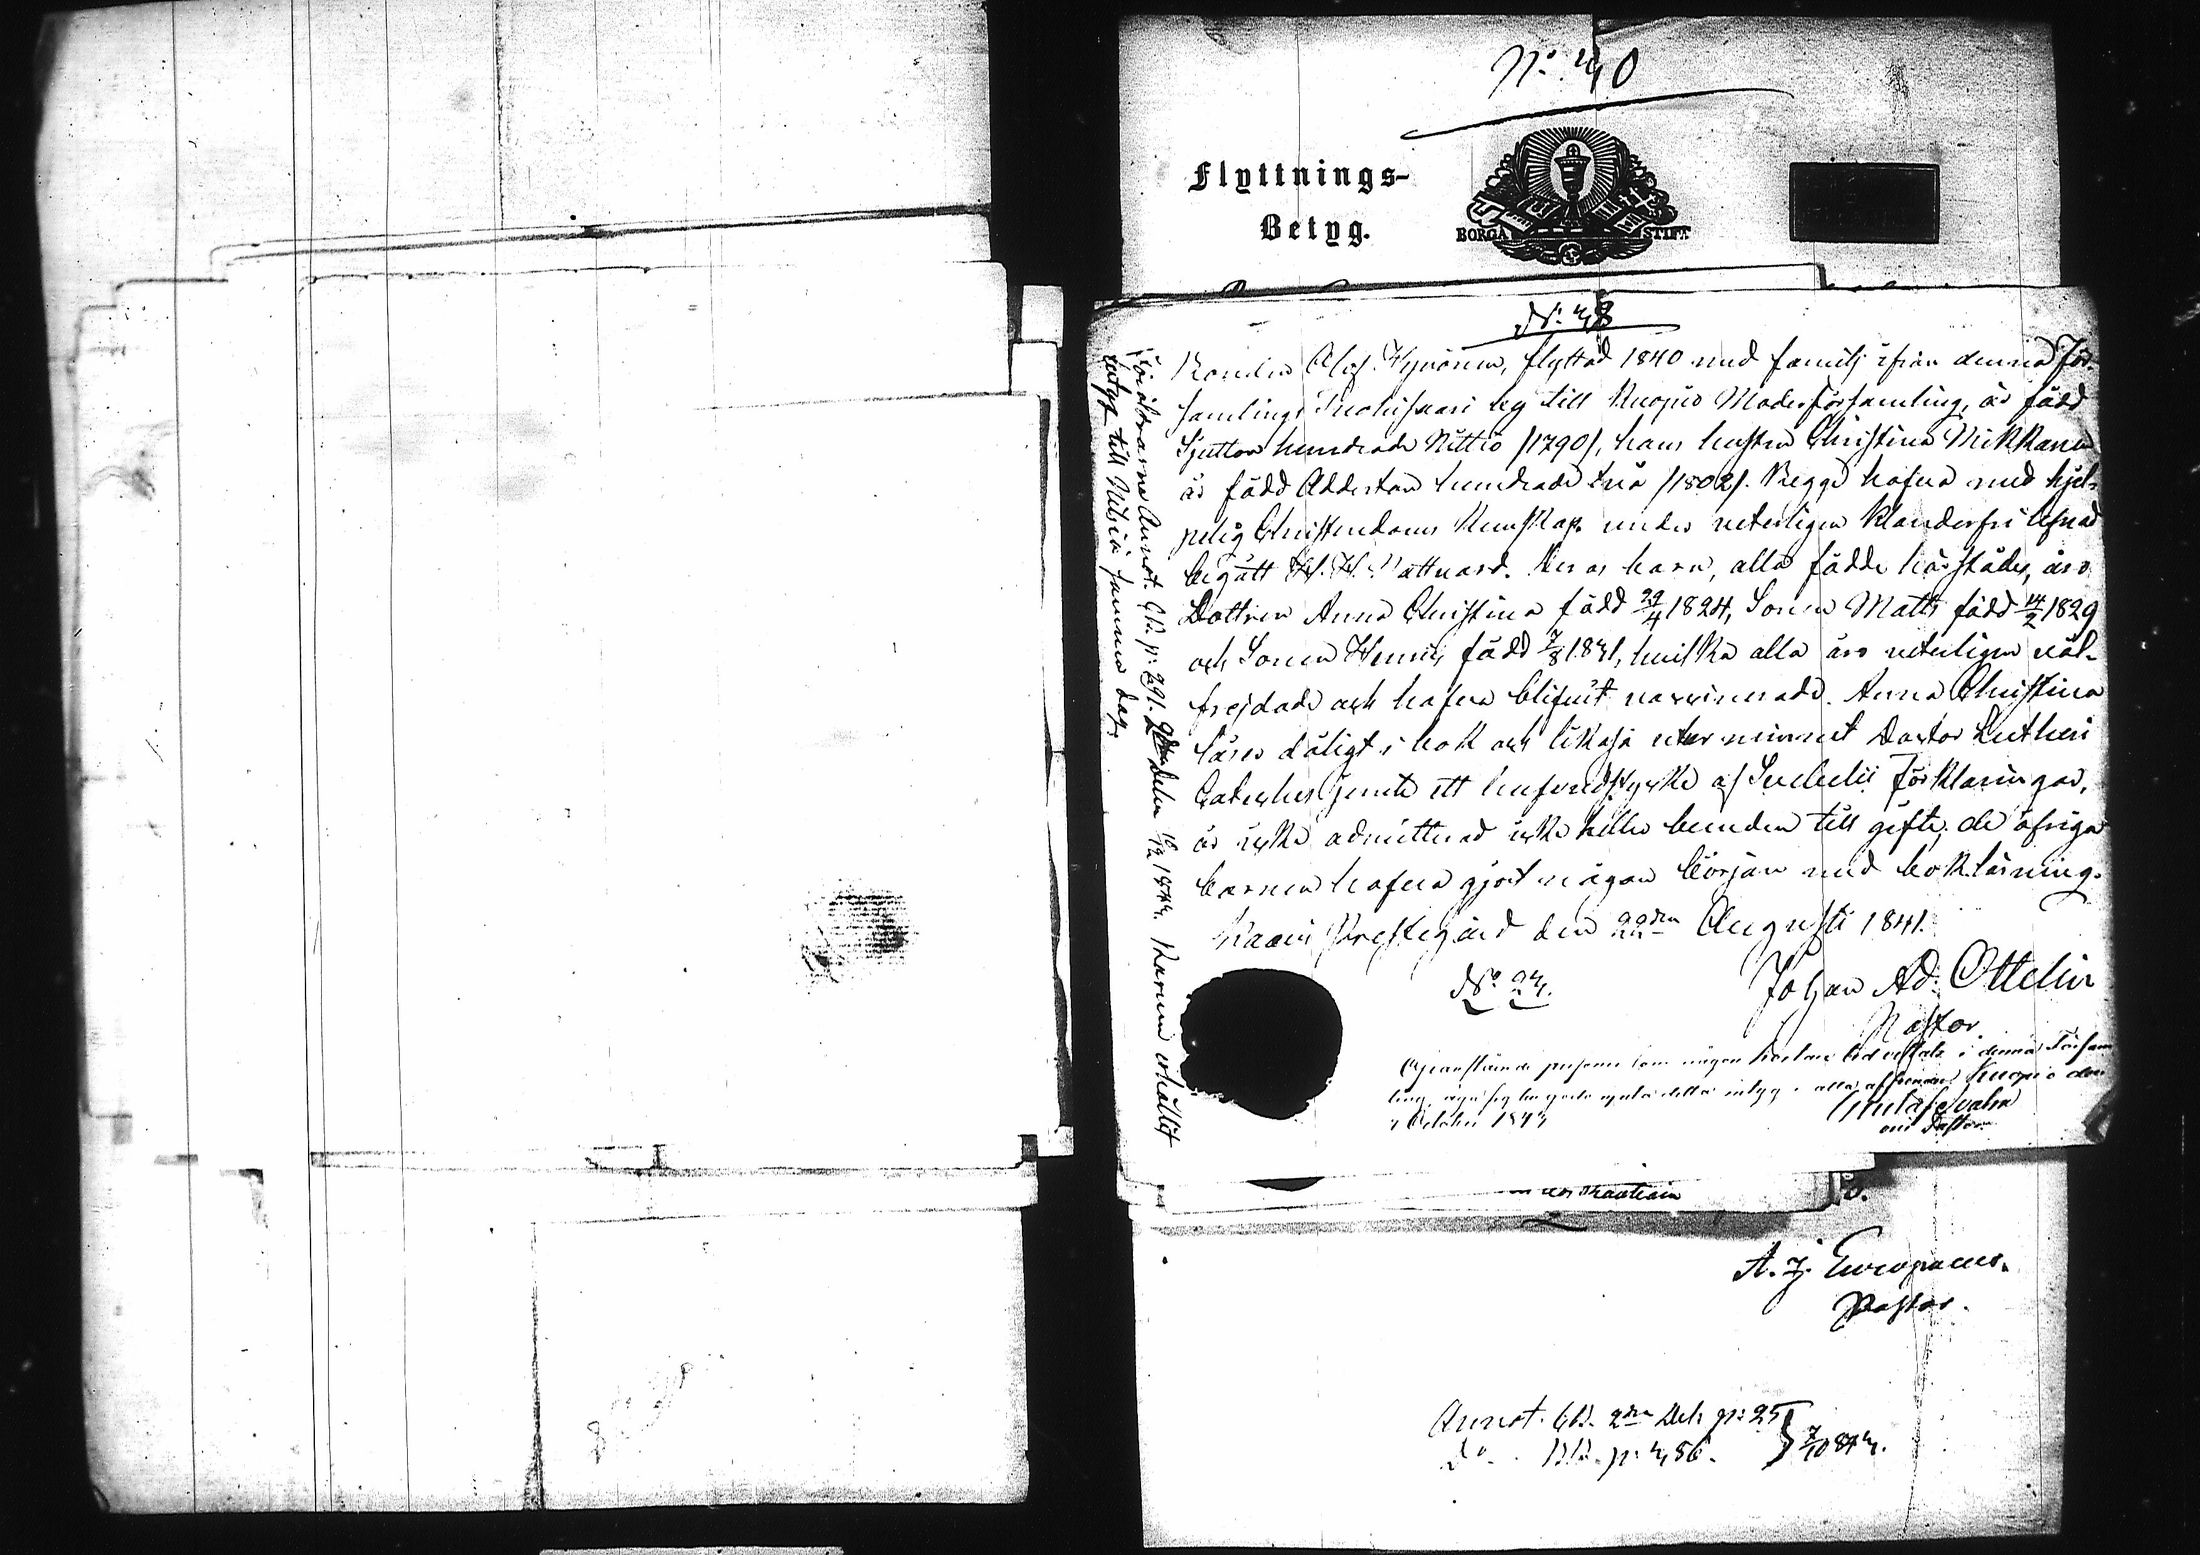 No 40
Flyttnings-
Betyg.
BORGÅ STIFT
No 48
Bonden Olof Hyvönen, flyttad 1840 med familj ifrån denna För-
samlings by till Kuopio Moderförsamling, är född
Sjutton hundrade Nittio /1790/, hans hustru Christina Mikkanen
är född Adderton hundrade två /1802/. Begge hafva med hjel-
pelig Christendoms Kunskap under veterligen klanderfri lefnad
begått H. H. Nattvard. Deras barn, alla födde härstädes, äro
Dottren Anna Christina född 22/4 1824, Sonen Matts född 14/2 1829
och Sonen Henric född 7/8 1831, hvilka alla äro veterligen väl-
frejdade och hafva blifvit vaccinerade. Anna Christina
läser dåligt i bok och likaså utur minnet Doctor Lutheri
Cateches jemte ett hufvudstycke af Svebelii Förklaringar,
är icke admitterad icke heller bunden till gifte; de öfriga
barnen hafva gjort någon början med bokläsning.
Kaavi Prestegård den 22dra Augusti 1841.
No 94.
Johan Ad: Ottelin
Pastor
Ofvanstående personer som någon kortare tid vistats i denna Försam
ling, detta intyg Kuopio den
October 1844
Gustaf
vice Pastor
Föräldrarne Annot. p: 291. 2dra Delen 10/12 1844. Barnen erhållit
intyg till Nilsiä samma dag.
A. J. Europaeus.
Pastor.
Annot. 2dra Del. p: 25
Do. p: 486. 7/10 844.